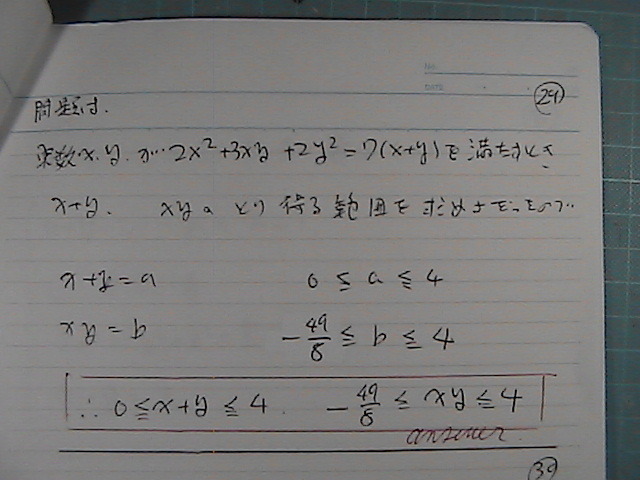 NO.
DATE
29
問題は.
実数x.y.が…2x²+3xy+2y²=7(x+y)を満たすとき
x+y. xyのとり得る範囲を求めよ
x+y=a 0≦a≦4
xy=b -49/8≦b≦4
∴ 0≦x+y≦4. -49/8≦xy≦4
answer.
30